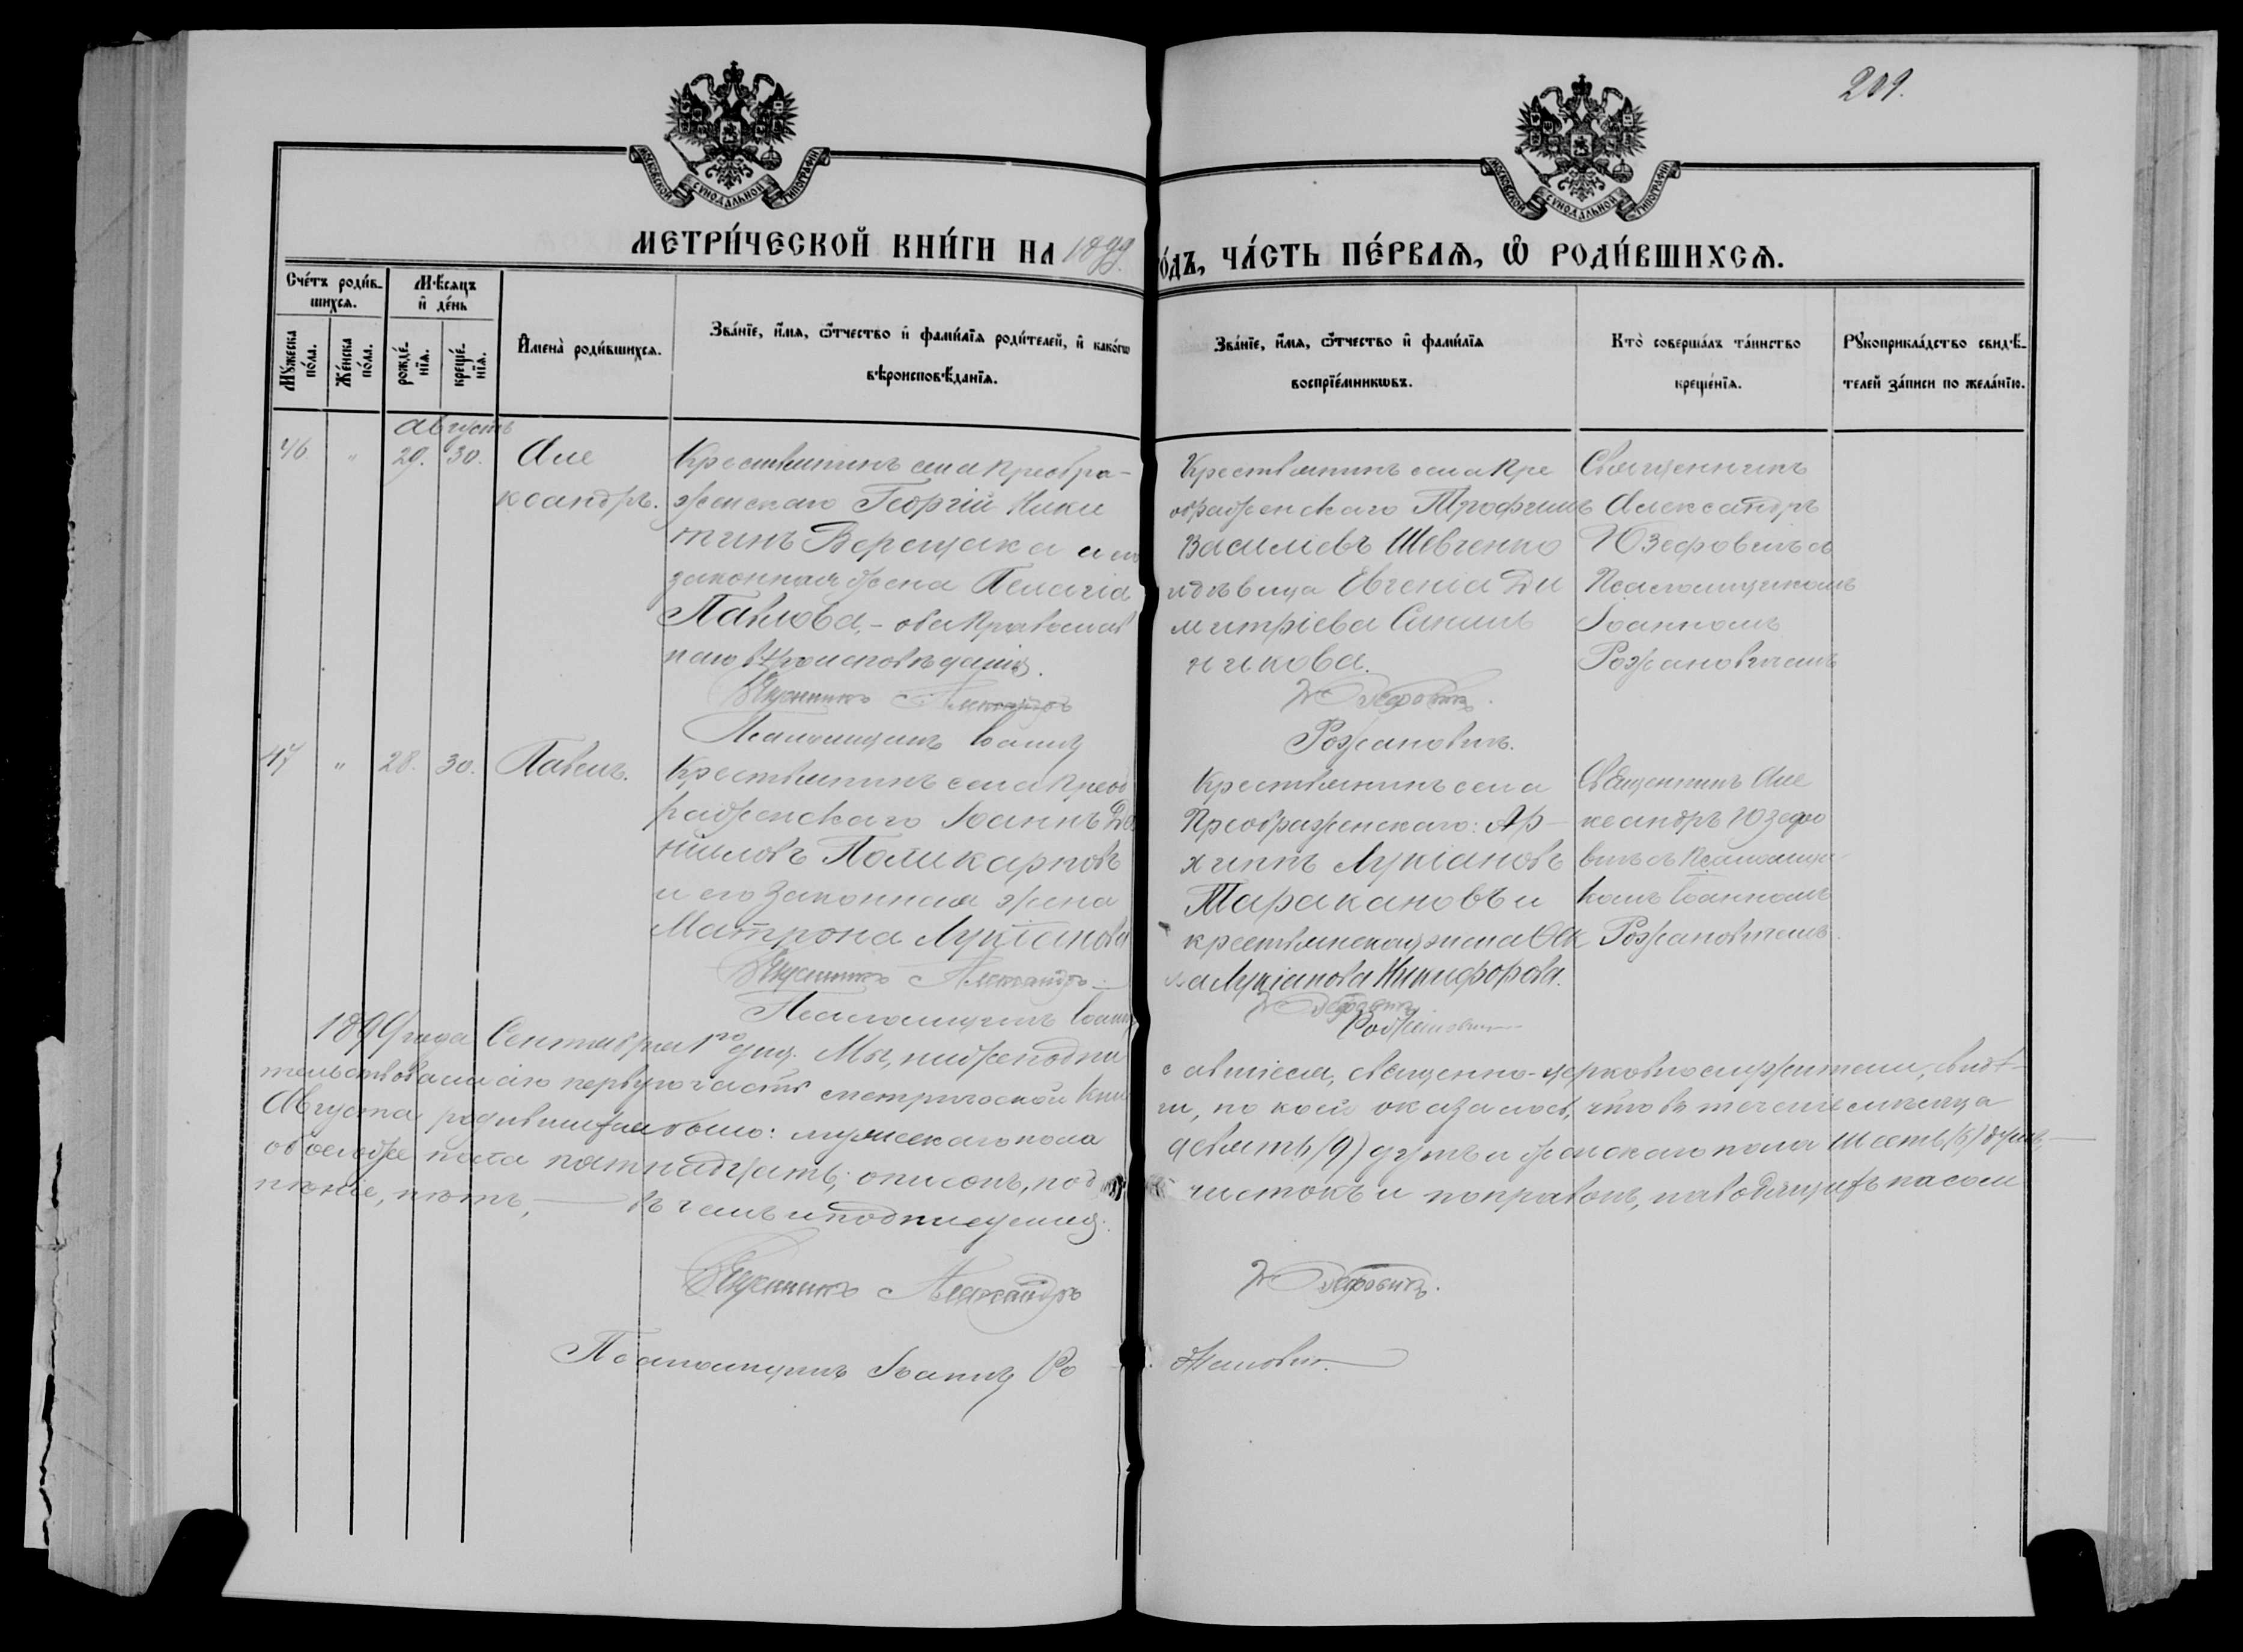 209.
МОСКОВСКОЙ СѴНОДАЛЬНОЙ ТИПОГРАФІИ
МОСКОВСКОЙ СѴНОДАЛЬНОЙ ТИПОГРАФІИ
МЕТРИ́ЧЕСКОЙ КНИ́ГИ НА 1899 го́дъ, ЧА́СТЬ ПЕ́РВАѦ, Ѡ РОДИ́ВШИХСѦ.
Сче́тъ роди́в-
шихсѧ.
Мѣ́сѧцъ
и де́нь
Мꙋ́жеска
по́ла.
Же́нска
по́ла.
рожде́-
нїѧ.
креще́-
нїѧ.
И҆мена̀ роди́вшихсѧ.
Зва́нїе, и҆́мѧ, ѻ҆́тчество и҆ фами́лїѧ роди́телей, и҆ како́гѡ
вѣроисповѣ́данїѧ.
Зва́нїе, и҆́мѧ, ѻ҆́тчество и҆ фами́лїѧ
воспрїе́мникѡвъ.
Кто̀ соверша́лъ та́инство
креще́нїѧ.
Рꙋкоприкла́дство свидѣ́-
телей за́писи по жела́нїю.
Августъ
46 " 29. 30. Але
ксандръ.
Крестьянинъ села Преобра-
женскаго Георгій Ники
тинъ Верещака и его
законная жена Пелагія
Павлова, - оба православ
наго вѣроисповѣданія.
Священникъ Александръ
Псаломщикъ Іоаннъ
Крестьянинъ села Пре
ображенскаго Трофимъ
Василіевъ Шевченко
и дѣвица Евгенія Ди
митріева Ситни
никова.
Юзефовичъ.
Рожановичъ.
Священникъ
Александръ
Юзефовичъ съ
Псаломщикомъ
Іоанномъ
Рожановичемъ
47 " 28. 30. Павелъ.
Крестьянинъ села Преоб
раженскаго Іоаннъ Да
ниловъ Поликарповъ
и его законная жена
Матрона Лукіанова
Священникъ Александръ
Псаломщикъ Іоаннъ
Крестьянинъ села
Преображенскаго: Ар-
хиппъ Лукіановъ
Таракановъ и
крестьянская жена Ѳек
ла Лукіанова Никифорова.
Юзефовичъ
Рожановичъ
Священникъ Але
ксандръ Юзефо
вичъ съ Псаломщи
комъ Іоанномъ
Рожановичемъ.
1899 года Сентября 1го дня. Мы, нижеподпи
савшіеся, священно-церковнослужители, свидѣ-
тельствовали сію первую часть метрической кни
ги, по коей оказалось, что въ теченіе мѣсяца
Августа родившихся было: мужескаго пола
девять (9) душъ и женскаго пола шесть (6) душъ, —
обоего же пола пятнадцать; описокъ, под
чистокъ и поправокъ, наводящихъ на сом
нѣніе, нѣтъ, — въ чемъ и подписуемся.
Священникъ Александръ Юзефовичъ.
Псаломщикъ Іоаннъ Рожановичъ.